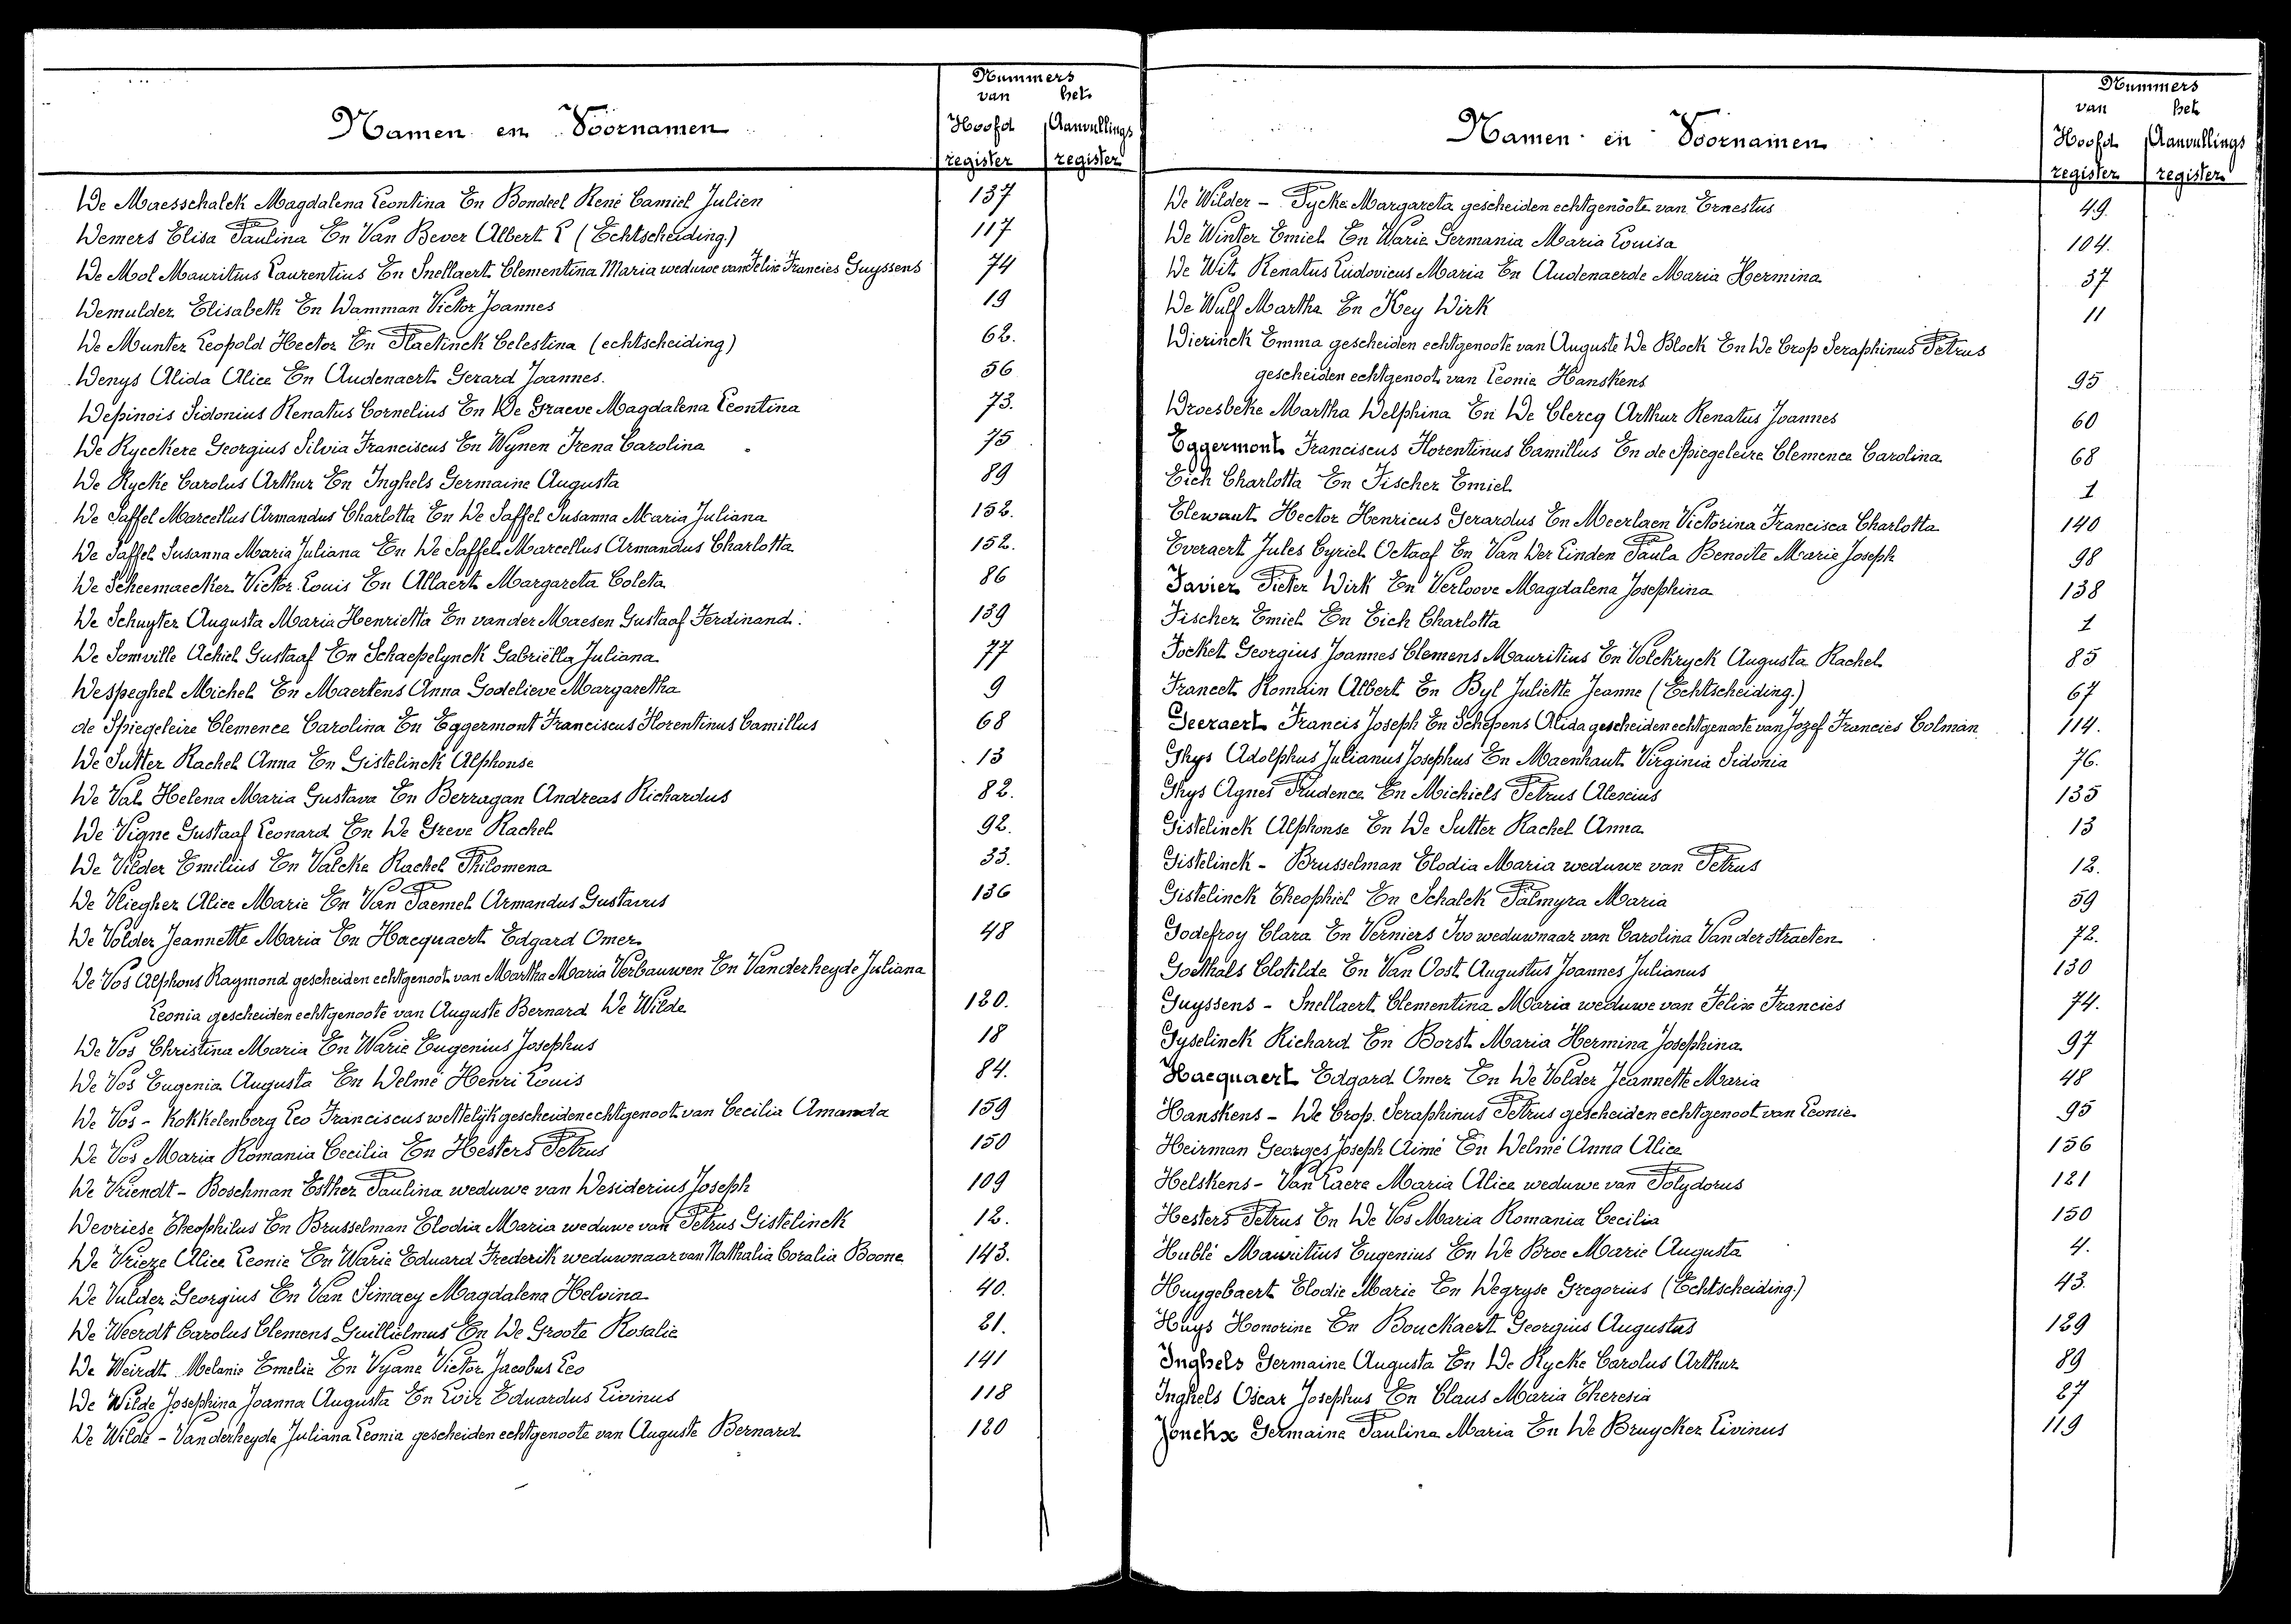 Nummers
van het
Namen en Voornamen
Hoofd Aanvullings
register register
De Maesschalck Magdalena Leontina En Bondeel René Camiel Julien 137
Demers Elisa Paulina En Van Bever Albert L (Echtscheiding.) 117
De Mol Mauritius Laurentius En Snellaert Clementina Maria weduwe van Felix Francies Guyssens 74
Demulder Elisabeth En Damman Victor Joannes 19
De Munter Leopold Hector En Plaetinck Celestina (echtscheiding) 62.
Denys Alida Alice En Audenaert Gerard Joannes. 56
Depinois Sidonius Renatus Cornelius En De Graeve Magdalena Leontina 73.
De Ryeckere Georgius Silvia Franciscus En Wynen Irena Carolina 75
De Rycke Carolus Arthur En Inghels Germaine Augusta 89
De Saffel Marcellus Armandus Charlotta En De Saffel Susanna Maria Juliana 152.
De Saffel Susanna Maria Juliana En De Saffel Marcellus Armandus Charlotta 152.
De Scheemaecker Victor Louis En Allaert Margareta Coleta 86
De Schuyter Augusta Maria Henrietta En vander Maesen Gustaaf Ferdinand. 139
De Somville Achiel Gustaaf En Schaepelynck Gabriëlla Juliana 77
Despeghel Michel En Maertens Anna Godelieve Margaretha 9
de Spiegeleire Clemence Carolina En Eggermont Franciscus Florentinus Camillus 68
De Sutter Rachel Anna En Gistelinck Alphonse 13
De Val Helena Maria Gustava En Berragan Andreas Richardus 82.
De Vigne Gustaaf Leonard En De Greve Rachel 92.
De Vilder Emilius En Valcke Rachel Philomena 33.
De Vliegher Alice Marie En Van Paemel Armandus Gustavus 136
De Volder Jeannette Maria En Hacquaert Edgard Omer 48
De Vos Alphons Raymond gescheiden echtgenoot van Martha Maria Verbauwen En Vanderheyde Juliana
Leonia gescheiden echtgenoote van Auguste Bernard De Wilde 120.
De Vos Christina Maria En Warie Eugenius Josephus 18
De Vos Eugenia Augusta En Delmé Henri Louis 84.
De Vos - Kokkelenberg Leo Franciscus wettelijk gescheiden echtgenoot van Cecilia Amanda 159
De Vos Maria Romania Cecilia En Hesters Petrus 150
De Vriendt - Boschman Esther Paulina weduwe van Desiderius Joseph 109
Devriese Theophilus En Brusselman Elodia Maria weduwe van Petrus Gistelinck 12.
De Vrieze Alice Leonie En Warie Eduard Frederik weduwnaar van Nathalia Coralia Boone 143.
De Vulder Georgius En Van Simaey Magdalena Helvina 40.
De Weerdt Carolus Clemens Guillielmus En De Groote Rosalie 21.
De Weirdt Melanie Emelie En Vyane Victor Jacobus Leo 141
De Wilde Josephina Joanna Augusta En Loir Eduardus Livinus 118
De Wilde - Vanderheyde Juliana Leonia gescheiden echtgenoote van Auguste Bernard 120
Nummers
van het
Namen en Voornamen
Hoofd Aanvullings
register register
De Wilder - Pycke Margareta gescheiden echtgenoote van Ernestus 49.
De Winter Emiel En Warie Germania Maria Louisa 104.
De Wit Renatus Ludovicus Maria En Audenaerde Maria Hermina 37
De Wulf Martha En Key Dirk 11
Dierinck Emma gescheiden echtgenoote van Auguste De Block En De Crop Seraphinus Petrus
gescheiden echtgenoot van Leonie Hanskens 95
Droesbeke Martha Delphina En De Clercq Arthur Renatus Joannes 60
Eggermont Franciscus Florentinus Camillus En de Spiegeleire Clemence Carolina 68
Eich Charlotta En Fischer Emiel 1
Elewaut Hector Henricus Gerardus En Meerlaen Victorina Francisca Charlotta 140
Everaert Jules Cyriel Octaaf En Van Der Linden Paula Benoite Marie Joseph 98
Favier Pieter Dirk En Verloove Magdalena Josephina 138
Fischer Emiel En Eich Charlotta 1
Focket Georgius Joannes Clemens Mauritius En Volckryck Augusta Rachel 85
Franeet Romain Albert En Byl Juliette Jeanne (Echtscheiding.) 67
Geeraert Francis Joseph En Schepens Alida gescheiden echtgenoote van Jozef Francies Colman 114.
Ghys Adolphus Julianus Josephus En Maenhaut Virginia Sidonia 76.
Ghys Agnes Prudence En Michiels Petrus Alexius 135
Gistelinck Alphonse En De Sutter Rachel Anna 13
Gistelinck - Brusselman Elodia Maria weduwe van Petrus 12.
Gistelinck Theophiel En Schalck Palmyra Maria 59
Godefroy Clara En Verniers Ivo weduwnaar van Carolina Van der straeten 72.
Goethals Clotilde En Van Oost Augustus Joannes Julianus 130
Guyssens - Snellaert Clementina Maria weduwe van Felix Francies 74.
Gyselinck Richard En Borst Maria Hermina Josephina 97
Hacquaert Edgard Omer En De Volder Jeannette Maria 48
Hanskens - De Crop. Seraphinus Petrus gescheiden echtgenoot van Leonie 95
Heirman Georges Joseph Aimé En Delmé Anna Alice 156
Helskens - Van Laere Maria Alice weduwe van Polydorus 121
Hesters Petrus En De Vos Maria Romania Cecilia 150
Hublé Mauritius Eugenius En De Broe Marie Augusta 4.
Huygebaert Elodie Marie En Degryse Gregorius (Echtscheiding.) 43.
Huys Honorine En Bouckaert Georgius Augustus 129
Inghels Germaine Augusta En De Rycke Carolus Arthur 89
Inghels Oscar Josephus En Claus Maria Theresia 27
Jonckx Germaine Paulina Maria En De Bruycker Livinus 119